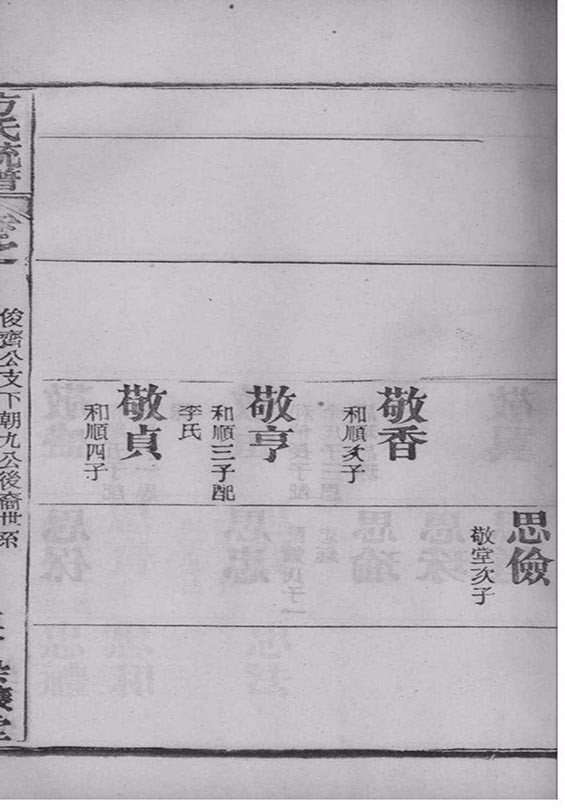 思儉
敬堂次子
敬香
和順次子
敬亨
和順三子配
李氏
敬貞
和順四子
方氏統譜
卷之一
俊齊公支下朝九公後裔世系